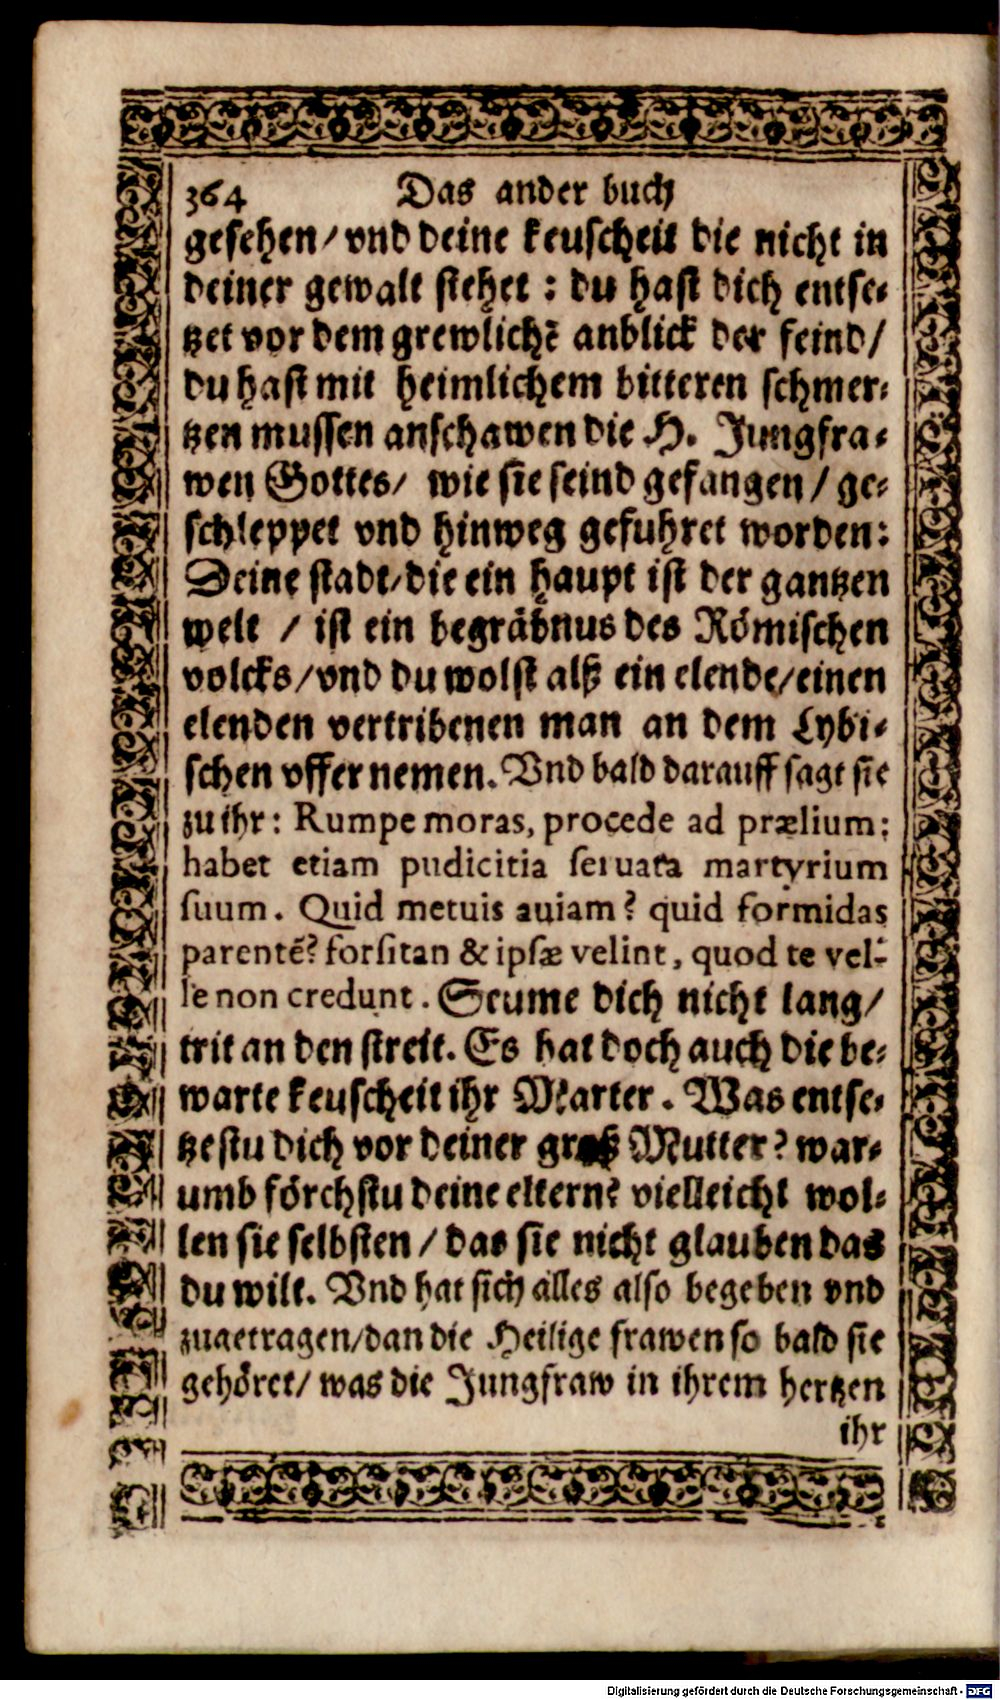 364 Das ander buch
gesehen/ vnd deine keuscheit die nicht in
deiner gewalt stehet : du hast dich entse-
tzet vor dem grewlichē anblick der feind/
du hast mit heimlichem bitteren schmer-
tzen mussen anschawen die H. Jungfra-
wen Gottes/ wie sie seind gefangen / ge-
schleppet vnd hinweg gefuhret worden:
Deine stadt/ die ein haupt ist der gantzen
welt / ist ein begräbnus des Römischen
volcks/ vnd du wolst alß ein elende/ einen
elenden vertribenen man an dem Lybi-
schen vffer nemen. Vnd bald darauff sagt sie
zu ihr: Rumpe moras, procede ad prælium:
habet etiam pudicitia seruata martyrium
suum. Quid metuis auiam? quid formidas
parentē? forsitan & ipsæ velint, quod te vel-
le non credunt. Seume dich nicht lang/
trit an den streit. Es hat doch auch die be-
warte keuscheit ihr Marter. Was entse-
tzestu dich vor deiner groß Mutter? war-
umb förchstu deine eltern? vielleicht wol-
len sie selbsten / das sie nicht glauben das
du wilt. Vnd hat sich alles also begeben vnd
zugetragen/ dan die Heilige frawen so bald sie
gehöret/ was die Jungfraw in ihrem hertzen
ihr
Digitalisierung gefördert durch die Deutsche Forschungsgemeinschaft - DFG